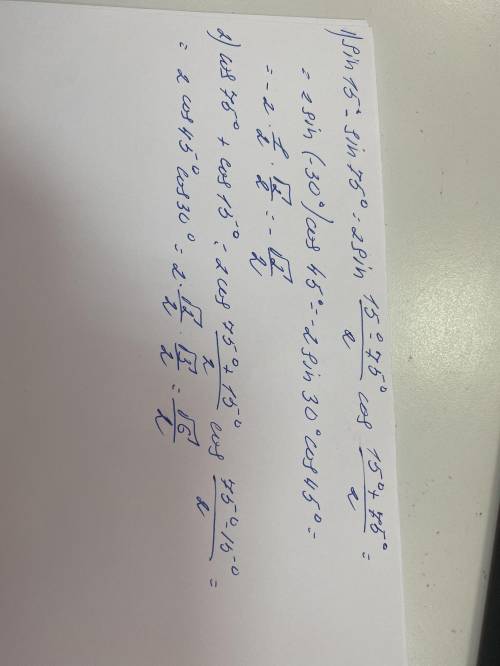 1) sin 15° - sin 75° = 2 sin (15° - 75°)/2 cos (15° + 75°)/2 =
= 2 sin (-30°) cos 45° = -2 sin 30° cos 45° =
= -2 · 1/2 · √2/2 = -√2/2
2) cos 75° + cos 15° = 2 cos (75° + 15°)/2 cos (75° - 15°)/2 =
= 2 cos 45° cos 30° = 2 · √2/2 · √3/2 = √6/2